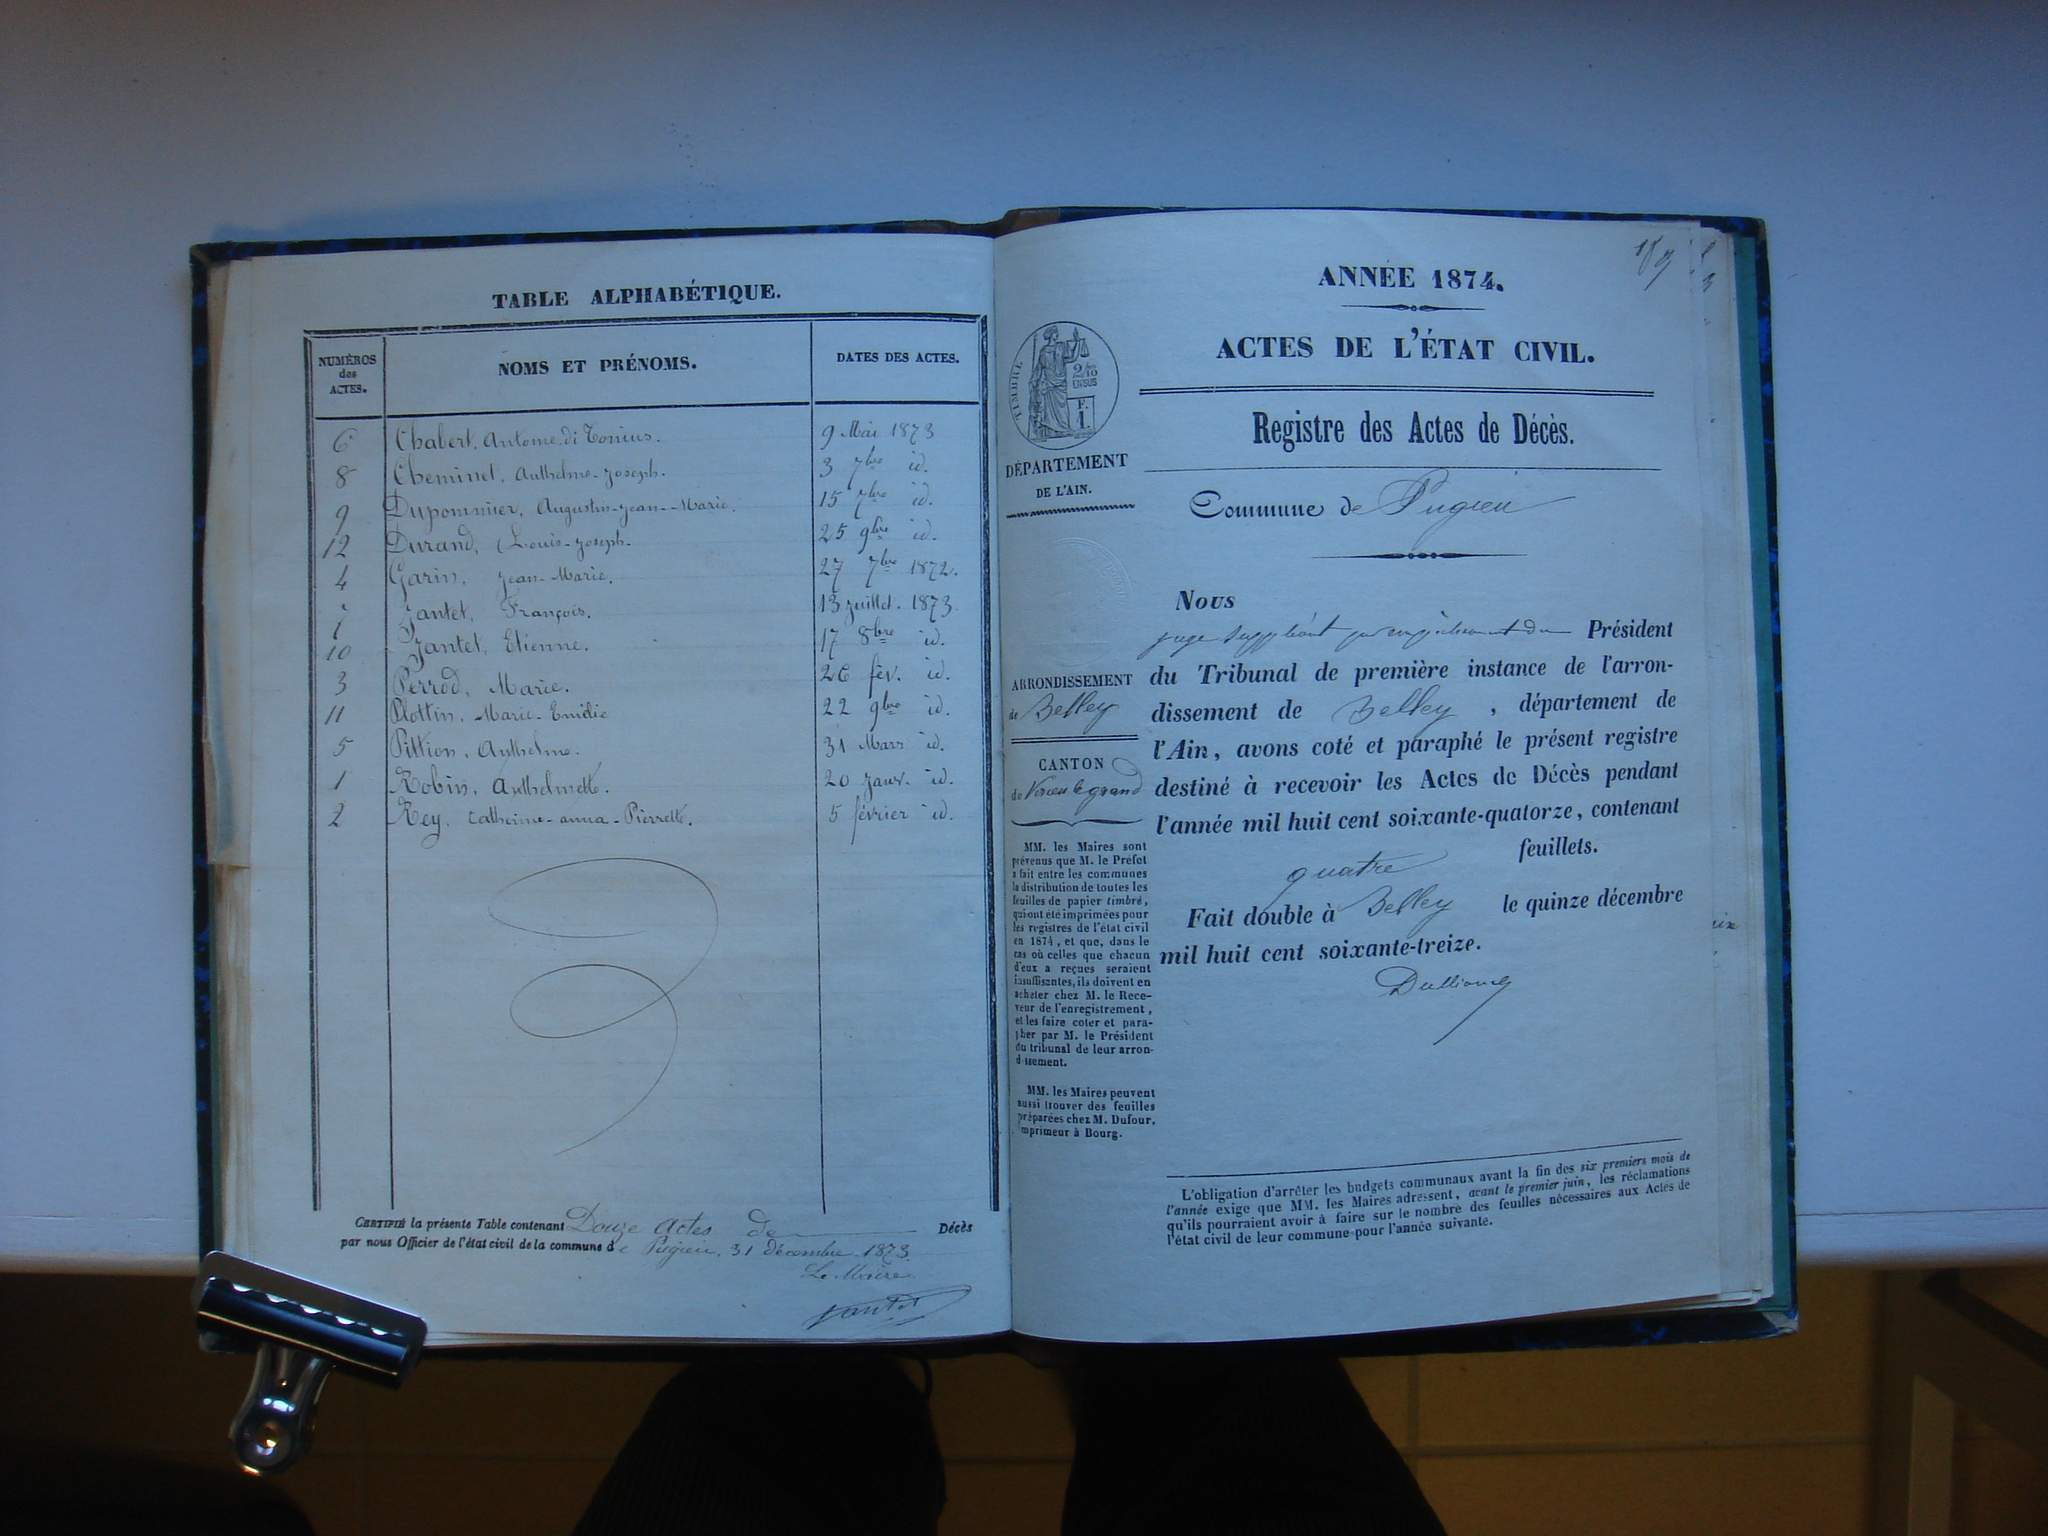 TABLE ALPHABÉTIQUE.
NUMÉROS des ACTES. NOMS ET PRÉNOMS. DATES DES ACTES.
6 Chabert, Antoine, di Tonius. 9 Mai 1873
8 Cheminet, Anthelme-Joseph. 3 7bre id.
9 Dupommier, Augustin-Jean-Marie. 15 7bre id.
12 Durand, Louis-Joseph. 25 9bre id.
4 Garin, Jean-Marie. 27 7bre 1872.
7 Jantet, François. 13 Juillet. 1873
10 Jantet, Etienne. 17 8bre id.
3 Perrod, Marie. 26 fév. id.
11 Plottin, Marie-Emilie 22 9bre id.
5 Pittion, Anthelme. 31 Mars id.
1 Robin, Anthelmette. 20 Janv. id.
2 Rey, Catherine-anna-Pierrette. 5 février id.
CERTIFIÉ la présente Table contenant Douze Actes de Décès
par nous Officier de l'état civil de la commune de Pugieu, 31 décembre 1873.
Le Maire
Jantet
ANNÉE 1874.
ACTES DE L'ÉTAT CIVIL.
Registre des Actes de Décès.
TIMBRE
2/10
EN SUS
1 F.
DÉPARTEMENT
DE L'AIN.
Commune de Pugieu
ARRONDISSEMENT
de Belley
CANTON
de Virieu le grand
MM. les Maires sont
prévenus que M. le Préfet
a fait entre les communes
la distribution de toutes les
feuilles de papier timbré,
qui ont été imprimées pour
les registres de l'état civil
en 1874, et que, dans le
cas où celles que chacun
d'eux a reçues seraient
insuffisantes, ils doivent en
acheter chez M. le Rece-
veur de l'enregistrement,
et les faire coter et para-
pher par M. le Président
du tribunal de leur arron-
dissement.
MM. les Maires peuvent
aussi trouver des feuilles
préparées chez M. Dufour,
imprimeur à Bourg.
Nous
juge suppléant par empêchement du Président
du Tribunal de première instance de l'arron-
dissement de Belley, département de
l'Ain, avons coté et paraphé le présent registre
destiné à recevoir les Actes de Décès pendant
l'année mil huit cent soixante-quatorze, contenant
quatre feuillets.
Fait double à Belley le quinze décembre
mil huit cent soixante-treize.
L'obligation d'arrêter les budgets communaux avant la fin des six premiers mois de
l'année exige que MM. les Maires adressent, avant le premier juin, les réclamations
qu'ils pourraient avoir à faire sur le nombre des feuilles nécessaires aux Actes de
l'état civil de leur commune pour l'année suivante.